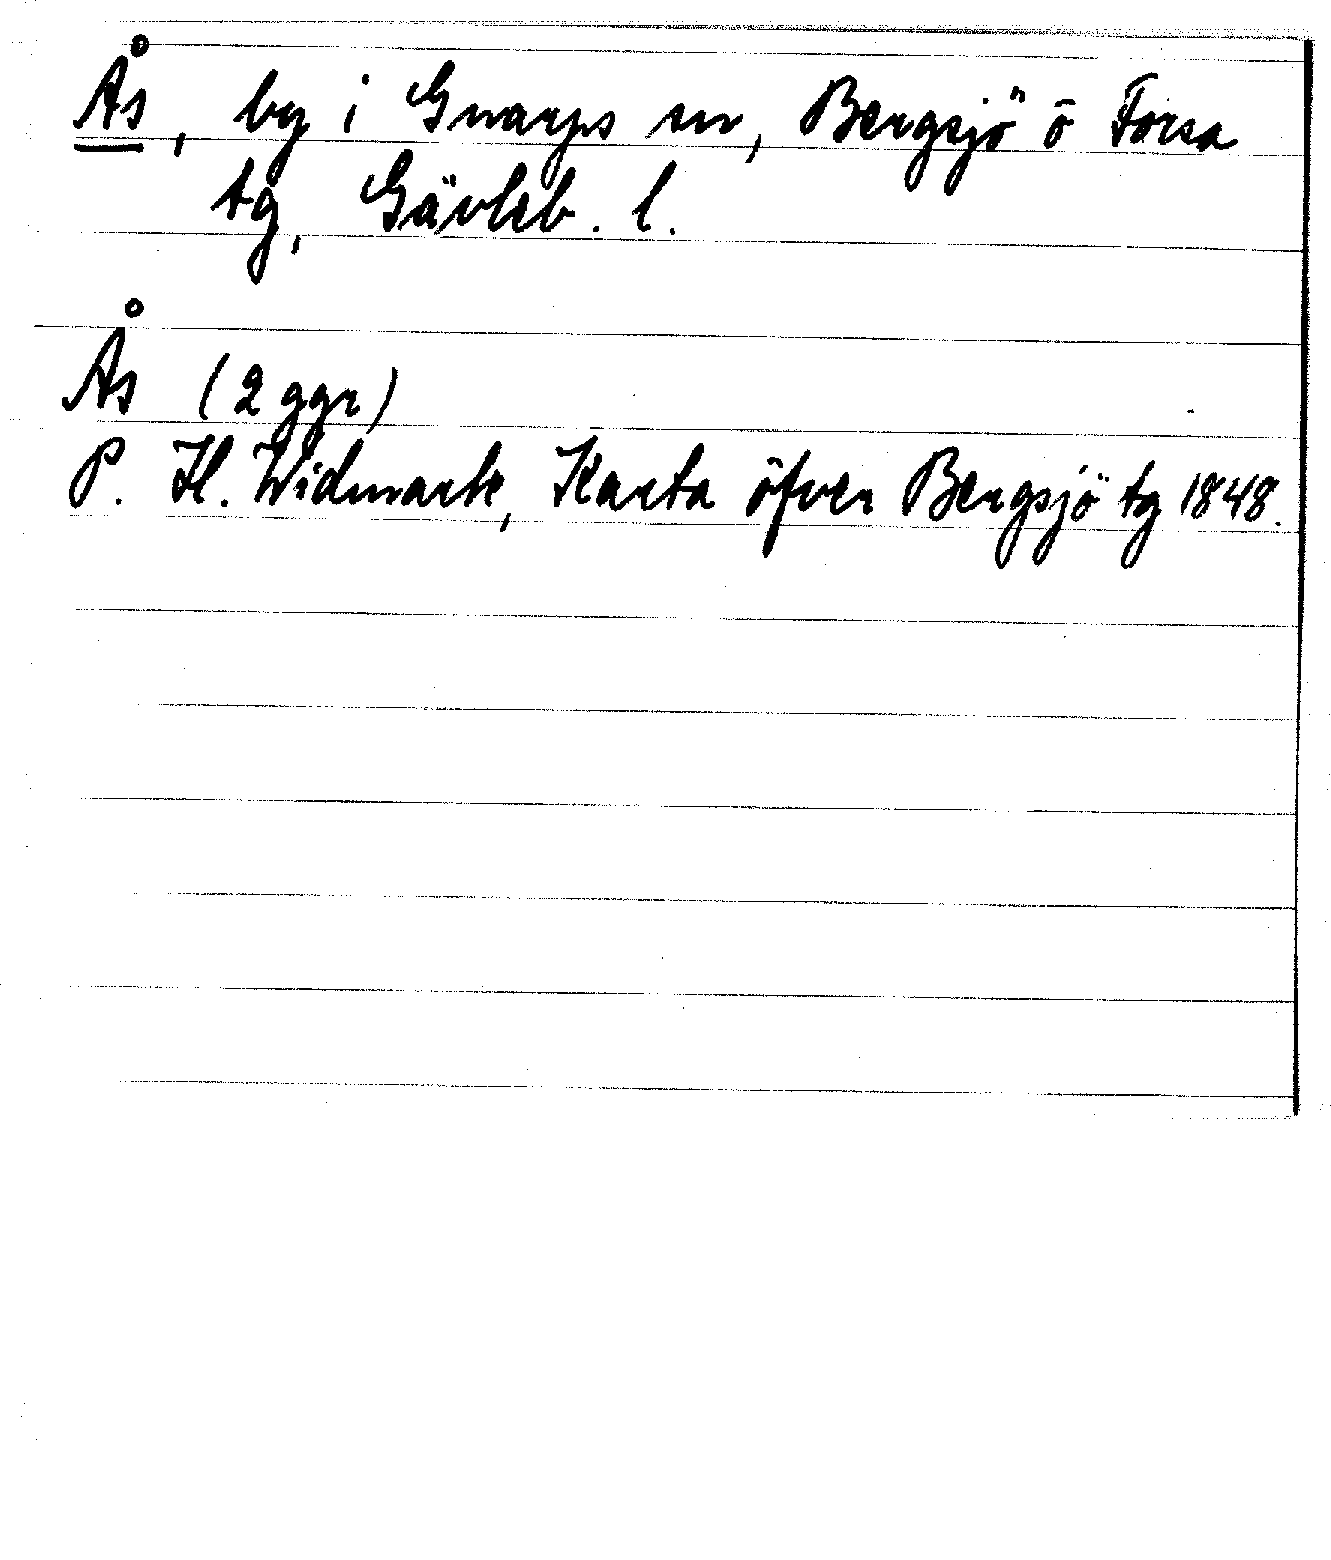 Ås, by i Gnarps sn, Bergsjö o Forsa
tg, Gävleb. l.
Ås (2 ggr)
P. H. Widmark, Karta öfver Bergsjö tg 1848.